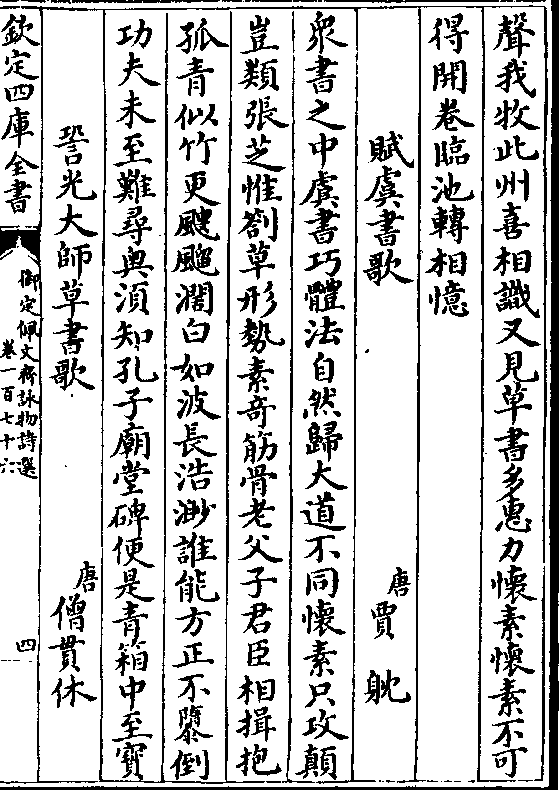 聲我牧此州喜相識又見草書多惠力懷素懷素不可
得開卷臨池轉相憶
賦虞書歌
唐賈躭
衆書之中虞書巧體法自然歸大道不同懷素只攻顛
豈類張芝惟劄草形勢素竒筋骨老父子君臣相揖抱
孤青似竹更颼飀濶白如波長浩渺誰能方正不隳倒
功夫未至難尋奥湏知孔子廟堂碑便是青箱中至寶
㘉光大師草書歌
唐僧貫休
欽定四庫全書
御定佩文齋詠物詩選
卷一百七十六
四